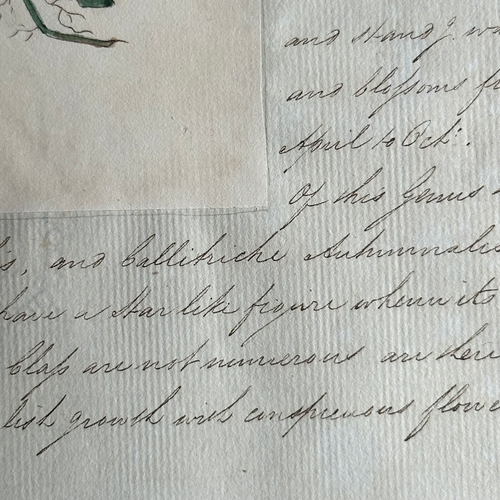 and stand.g wa
and blossoms fr
April to Oct.r.
Of this Genus
's, and Callitriche Autumnalis
have a Star like figure when its
Class are not numerous are there
lish growth with conspicuous flowe